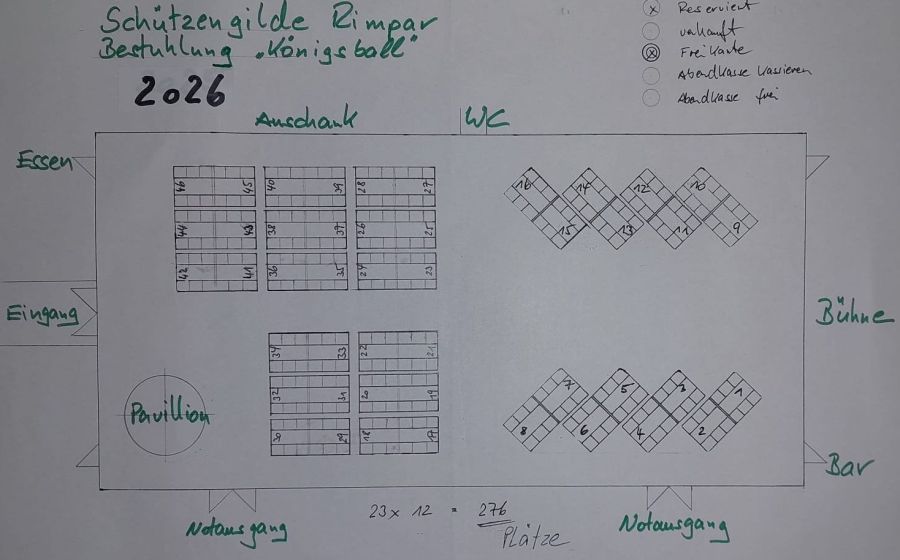 Schützengilde Rimpar
Bestuhlung „Königsball"
2026
Reserviert
verkauft
Freikarte
Abendkasse kassieren
Abendkasse frei
Ausschank
WC
Essen
46 45 40 39 28 27
44 43 38 37 26 25
42 41 36 35 24 23
16 14 12 10
15 13 11 9
Eingang
Bühne
34 33 22 21
32 31 20 19
30 29 18 17
7 5 3 1
8 6 4 2
Pavillion
Bar
Notausgang
23 x 12 = 276
Plätze
Notausgang